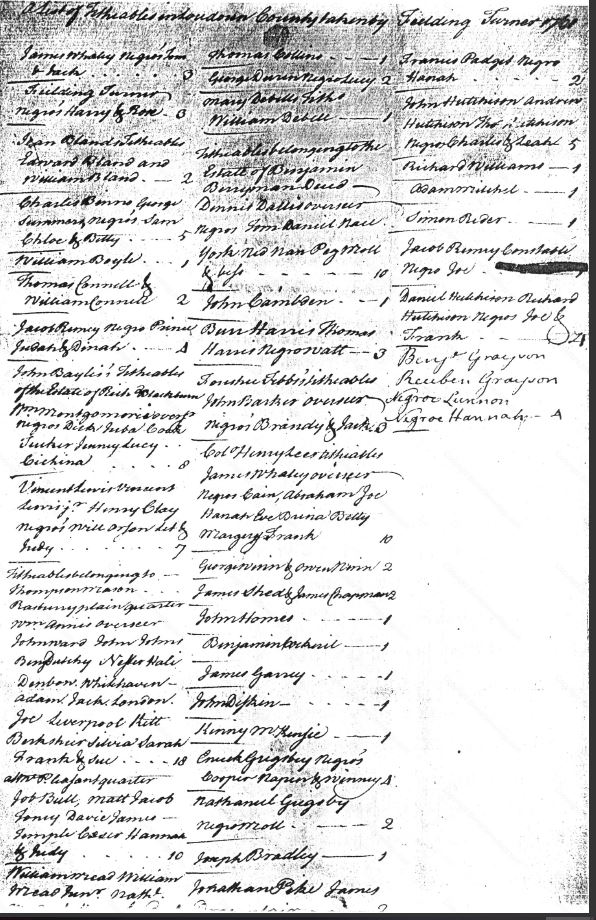 A list of Titheables in Loudoun County taken by Fielding Turner
James Whaley Negros Tom
& Jack 3
Fielding Turner
Negros Harry & Rose - 3
Jean Bland Titheables
Edward Bland and
William Bland - - 2
Charles Burns George
Summers Negros Sam
Chloe & Betty - - - 5
William Boyle - - 1
Thomas Connell &
William Connell 2
Jacob Remey Negro Prince
Judah & Dinah - - 4
John Bayliss Titheables
of the Estate of Rich'd Blackburn
Wm Montgomorie overs'r
Negros Dick Juba Cook
Tucker Jenney Lucy -
Cichina 8
Vincent Lewis Vincent
Lewis jr Henry Clay
Negros Will Orson Let &
Judy - - - - 7
Titheables belonging to
Thompson Mason
Rasburry plain quarter
Wm Annis overseer
John Ward John Johns
Ben Dutchy Hali
Denbow Whitehaven
Adam Jack London
Joe Liverpool Kitt
Berkshier Silvia Sarah
Frank & Sue - - - 18
Att Mt Pleasant quarter
Job Bull, Matt Jacob
Toney Davie James
Temple Caesar Hannah
& Judy - - - - 10
William Mead William
Mead Junr Nath'l
Thomas Collins - - 1
George Duren Negro Lucy 2
Mary Debells Tiths
William Debell - - 1
Titheables belonging to the
Estate of Benjamin
Berryman Dec'd
Dennis Dallis overseer
Negros Tom Daniel Nace
York Ned Nan Peg Moll
& bess - - - 10
John Cambden - - 1
Burr Harris Thomas
Harris Negro Watt - 3
Foushee Tebbs Titheables
John Barker overseer
Negros Brandy & Jack 3
Colo Henry Lees Titheables
James Whaley overseer
Negros Cain, Abraham Joe
Hanah Eve Bruna Betty
Margery Frank 10
George Winn & Owen Winn 2
James Shed & James Chapman 2
John Homes - - - 1
Benjamin Cockeril - - 1
James Garrey - - - 1
John Diskin - - - 1
Kinny McKinsie - - 1
Enuck Grigsby Negros
Cooper Napier & Winney 4
Nathaniel Grigsby
Negro Moll - - - 2
Joseph Bradley - - 1
Jonathan Pike James
Francis Padget Negro
Hanah - - - 2
John Hutchison Andrew
Hutchison Thos Hutchison
Negros Charles & Leah 5
Richard Williams - 1
Adam Mitchel - - 1
Simon Reder - - 1
Jacob Remey Constable
Negro Joe - - 1
Daniel Hutchison Richard
Hutchison Negros Joe &
Frank - - - 4
Benja Grayson
Reuben Grayson
Negroe Lunnon
Negroe Hannah - 4